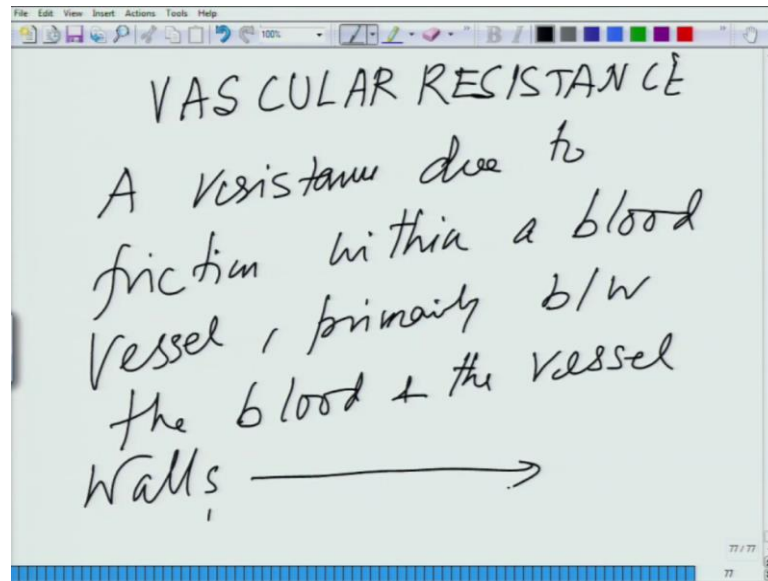 File Edit View Insert Actions Tools Help
100%
VASCULAR RESISTANCE
A resistance due to
friction within a blood
vessel, primarily b/w
the blood & the vessel
walls
77 / 77
77